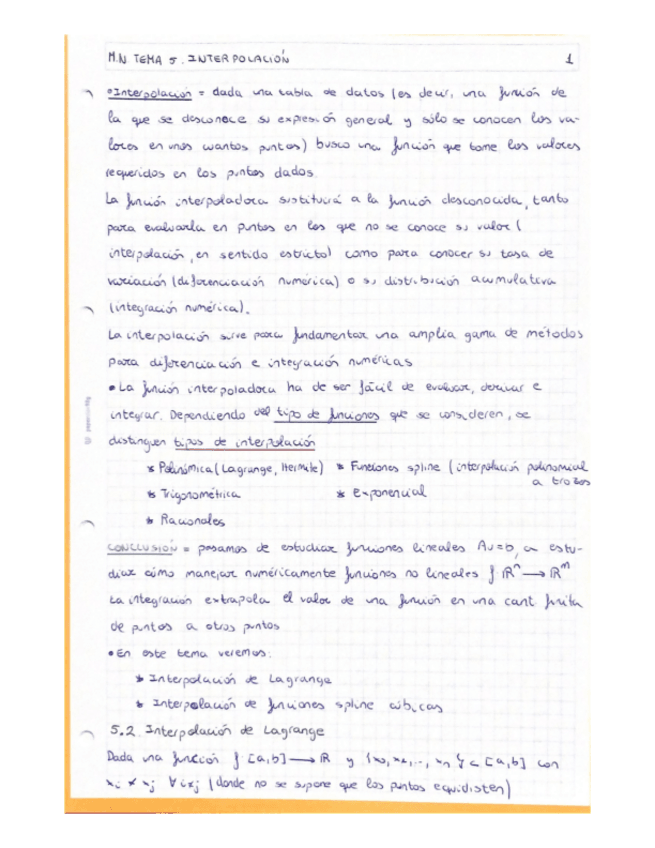 M.N. TEMA 5. INTERPOLACIÓN 1
•Interpolación = dada una tabla de datos (es decir, una función de
la que se desconoce su expresión general y sólo se conocen los va-
lores en unos cuantos puntos) busco una función que tome los valores
requeridos en los puntos dados.
La función interpoladora sustituirá a la función desconocida, tanto
para evaluarla en puntos en los que no se conoce su valor (
interpolación, en sentido estricto) como para conocer su tasa de
variación (diferenciación numérica) o su distribución acumulativa
(integración numérica).
La interpolación sirve para fundamentar una amplia gama de métodos
para diferenciación e integración numéricas
• La función interpoladora ha de ser fácil de evaluar, derivar e
integrar. Dependiendo del tipo de funciones que se consideren, se
distinguen tipos de interpolación
* Polinómica (Lagrange, Hermite) * Funciones spline (interpolación polinomial
a trozos
* Trigonométrica * Exponencial
* Racionales
CONCLUSIÓN = pasamos de estudiar funciones lineales Au=b, a estu-
diar cómo manejar numéricamente funciones no lineales f ℝⁿ → ℝᵐ
La integración extrapola el valor de una función en una cant. finita
de puntos a otros puntos
• En este tema veremos:
* Interpolación de Lagrange
* Interpolación de funciones spline cúbicas
5.2. Interpolación de Lagrange
Dada una función f [a,b] → ℝ y {x₀, x₁,..., xₙ} ⊂ [a,b] con
xᵢ ≠ xⱼ ∀ i≠j (donde no se supone que los puntos equidisten)